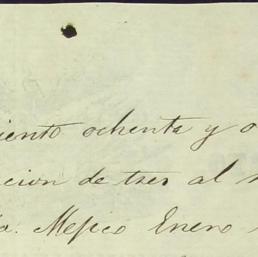 iento ochenta y o
cion de tres al
a. Mejico Enero